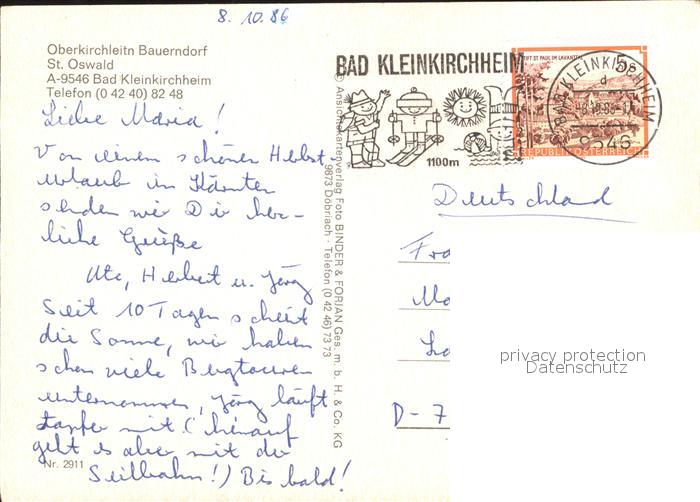 8. 10. 86
Oberkirchleitn Bauerndorf
St. Oswald
A-9546 Bad Kleinkirchheim
Telefon (0 42 40) 82 48
Liebe Maria!
Von einem schönen Herbst-
urlaub in Kärnten
senden wir Dir herz-
liche Grüße
Ute, Herbert u. Jörg
Seit 10 Tagen scheint
die Sonne, wir haben
schon viele Bergtouren
unternommen, Jörg läuft
tapfer mit (hinauf
geht es aber mit der
Seilbahn!) Bis bald!
Nr. 2911
© Ansichtskartenverlag Foto BINDER & FORJAN Ges. m. b. H. & Co. KG
9873 Döbriach - Telefon (0 42 46) 73 73
BAD KLEINKIRCHHEIM
1100m
STIFT ST. PAUL IM LAVANTTAL
5s
REPUBLIK ÖSTERREICH
BAD KLEINKIRCHHEIM
9546
Deutschland
Fra
D-7
privacy protection
Datenschutz